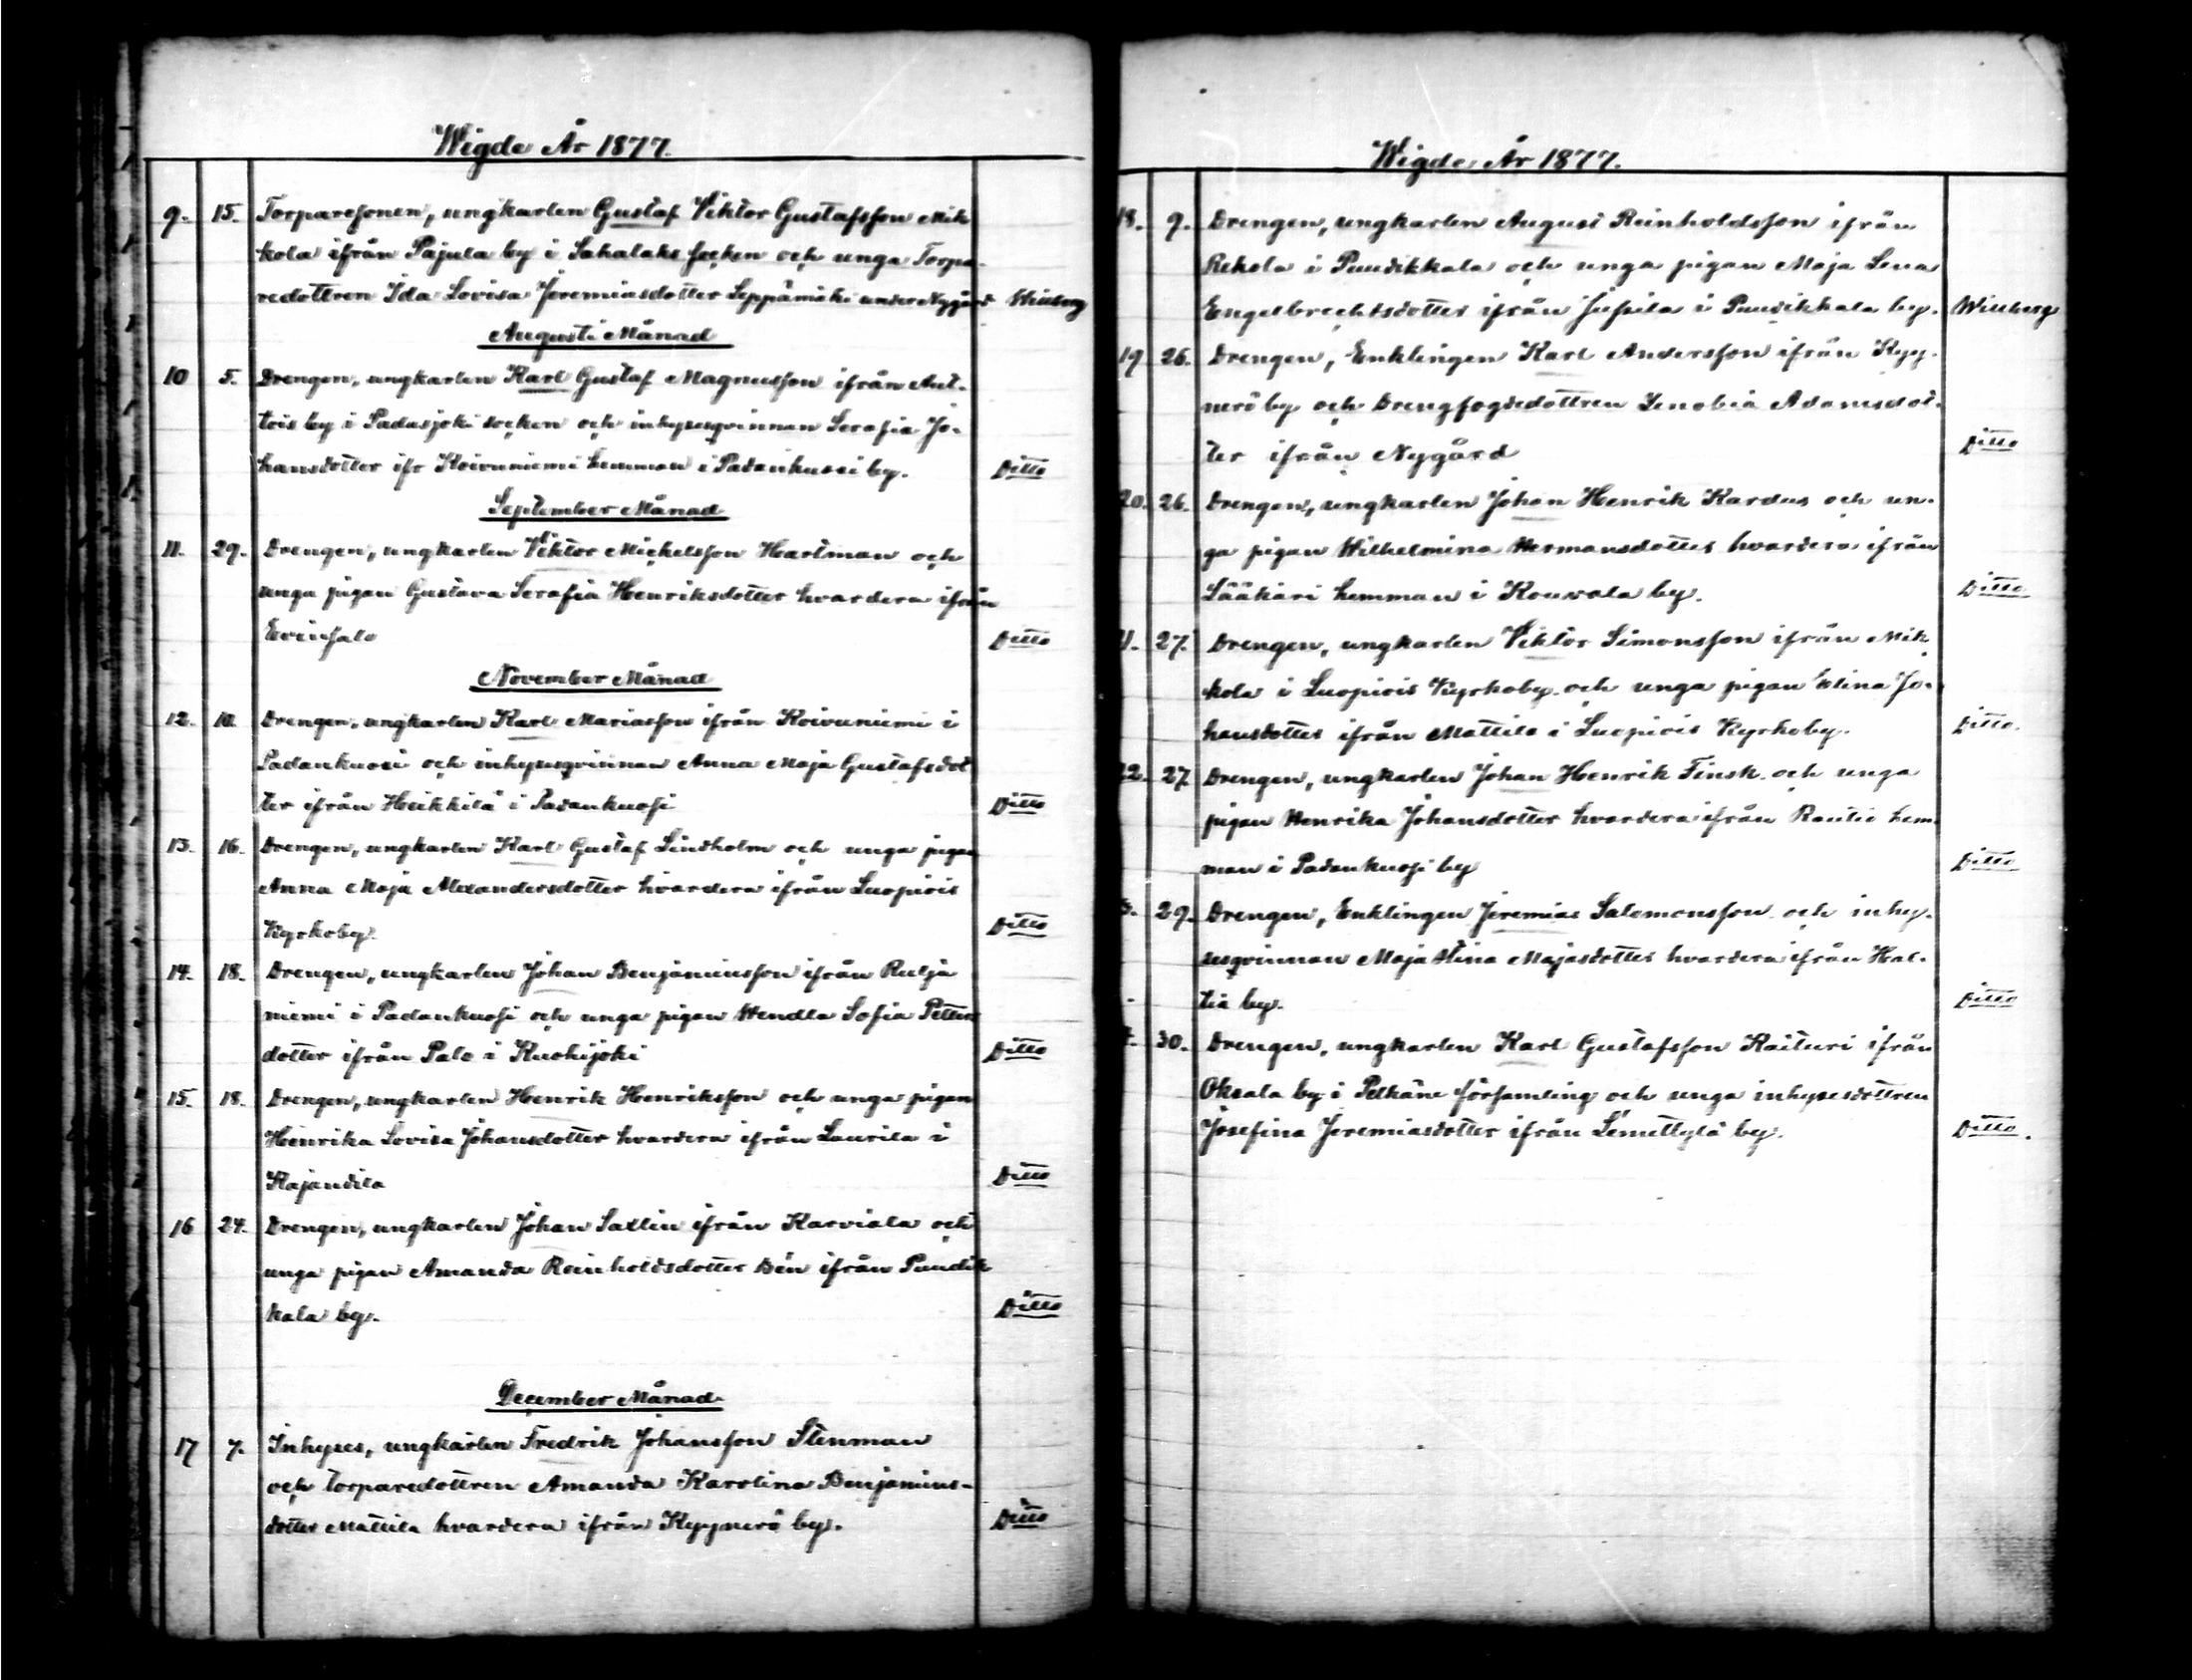 Wigde År 1877.
9. 15. Torparesonen, ungkarlen Gustaf Viktor Gustafsson Mik
kola ifrån Pajula by i Sahalaks socken och unga Torpa-
redottren Ida Lovisa Jeremiasdotter Seppämäki under Nygård
Augusti Månad
10 5. Drengen, ungkarlen Karl Gustaf Magnusson ifrån Aut-
tois by i Padasjoki socken och inhysesqvinnan Serafia Jo-
hansdotter ifr Koivuniemi hemman i Padankuosi by. Ditto
September Månad
11. 29. Drengen, ungkarlen Viktor Mickelsson Hartman och
unga pigan Gustava Serafia Henriksdotter hvardera ifrån
Evinsalo Ditto
November Månad
12. 10. Drengen, ungkarlen Karl Mariasson ifrån Koivuniemi i
Padankuosi och inhysesqvinnan Anna Maja Gustafsdot
ter ifrån Heikkilä i Padankuosi Ditto
13. 16. Drengen, ungkarlen Karl Gustaf Lindholm och unga pigan
Anna Maja Alexandersdotter hvardera ifrån Luopiois
Kyrkoby. Ditto
14. 18. Drengen, ungkarlen Johan Benjaminsson ifrån Rulja
niemi i Padankuosi och unga pigan Wendla Sofia Petters
dotter ifrån Palo i Kuohijoki Ditto
15. 18. Drengen, ungkarlen Henrik Henriksson och unga pigan
Henrika Lovisa Johansdotter hvardera ifrån Laurila i
Kajandila Ditto
16 24. Drengen, ungkarlen Johan Saxlin ifrån Karviala och
unga pigan Amanda Reinholdsdotter Bén ifrån Puudik
kala by. Ditto
December Månad
17 7. Inhyses, ungkarlen Fredrik Johansson Stenman
och torparedottren Amanda Karolina Benjamins-
dotter Mattila hvardera ifrån Kyynerö by. Ditto
Wigde År 1877.
18. 9. Drengen, ungkarlen August Reinholdsson ifrån
Rekola i Puudikkala och unga pigan Maja Lena
Engelbrechtsdotter ifrån i Puudikkala by. Winberg
19 26. Drengen, Enklingen Karl Andersson ifrån Kyy-
nerö by och Drengfogdedottren Zenobia Adamsdot-
ter ifrån Nygård Ditto
20. 26. Drengen, ungkarlen Johan Henrik Kardus och un-
ga pigan Wilhelmina Hermansdotter hvardera ifrån
Sääkäri hemman i Kouvala by. Ditto
1. 27. Drengen, ungkarlen Viktor Simonsson ifrån Mik
kola i Luopiois Kyrkoby och unga pigan Stina Jo-
hansdotter ifrån Mattila i Luopiois Kyrkoby. Ditto.
22. 27 Drengen, ungkarlen Johan Henrik Finsk och unga
pigan Henrika Johansdotter hvardera ifrån Rautio hem-
man i Padankuosi by Ditto
3. 29. Drengen, Enklingen Jeremias Salomonsson och inhy-
sesqvinnan Maja Stina Majasdotter hvardera ifrån Hal-
tia by. Ditto
30. Drengen, ungkarlen Karl Gustafsson Kaituri ifrån
Oksala by i Pelkäne församling och unga inhysesdottren
Josefina Jeremiasdotter ifrån Lemettylä by. Ditto.